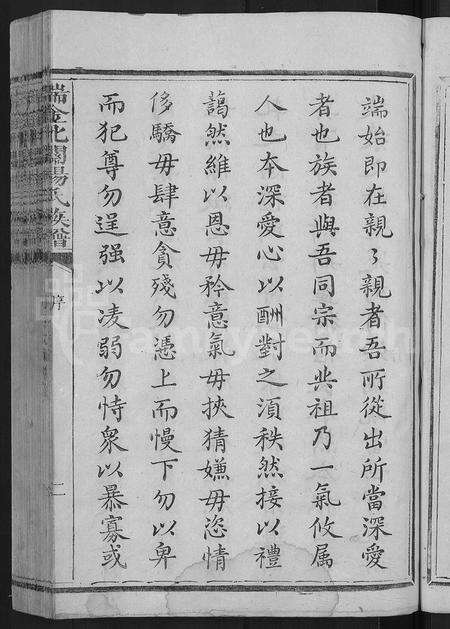 端始即在親〻親者吾所從出所當深愛
者也族者與吾同宗而共祖乃一氣攸属
人也本深愛心以酬對之湏秩然接以禮
藹然維以恩毋矜意氣毋挾猜嫌毋恣情
侈驕毋肆意貪殘勿憑上而慢下勿以卑
而犯尊勿逞强以凌弱勿恃衆以暴寡或
瑞金北關楊氏族譜
序
二